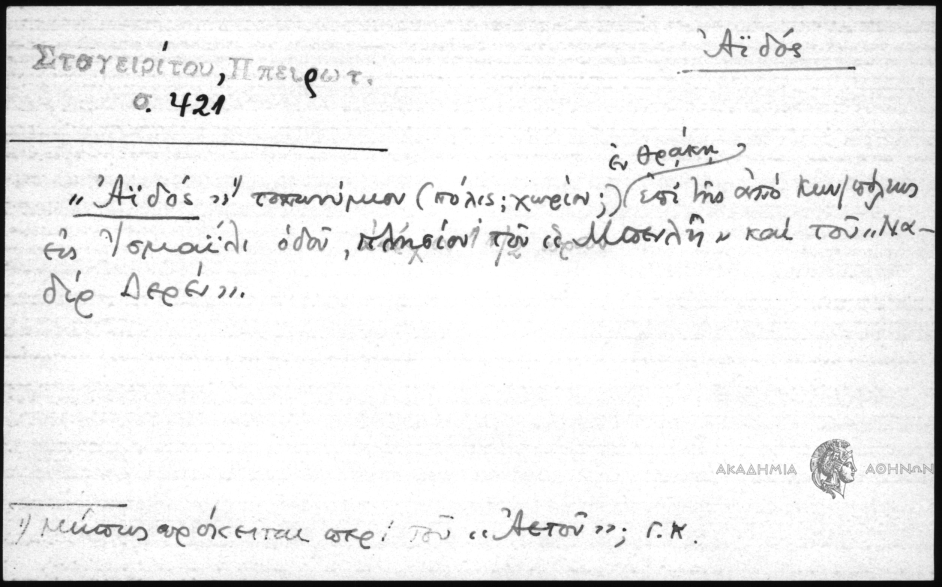 Ἀϊδός
Σταγειρίτου, Ἠπειρωτ.
σ. 421
ἐν Θράκῃ
„Ἀϊδός” 1) τοπωνύμιον (πόλις; χωρίον;) ἐπὶ τῆς ἀπὸ Κων/πόλεως
εἰς Ἰσμαήλι ὁδοῦ, πλησίον τοῦ „ καὶ τοῦ „Να-
δὶρ Δερέν”.
ΑΚΑΔΗΜΙΑ ΑΘΗΝΩΝ
1) Μήπως πρόκειται περὶ τοῦ «Ἀετοῦ»; Γ.Κ.